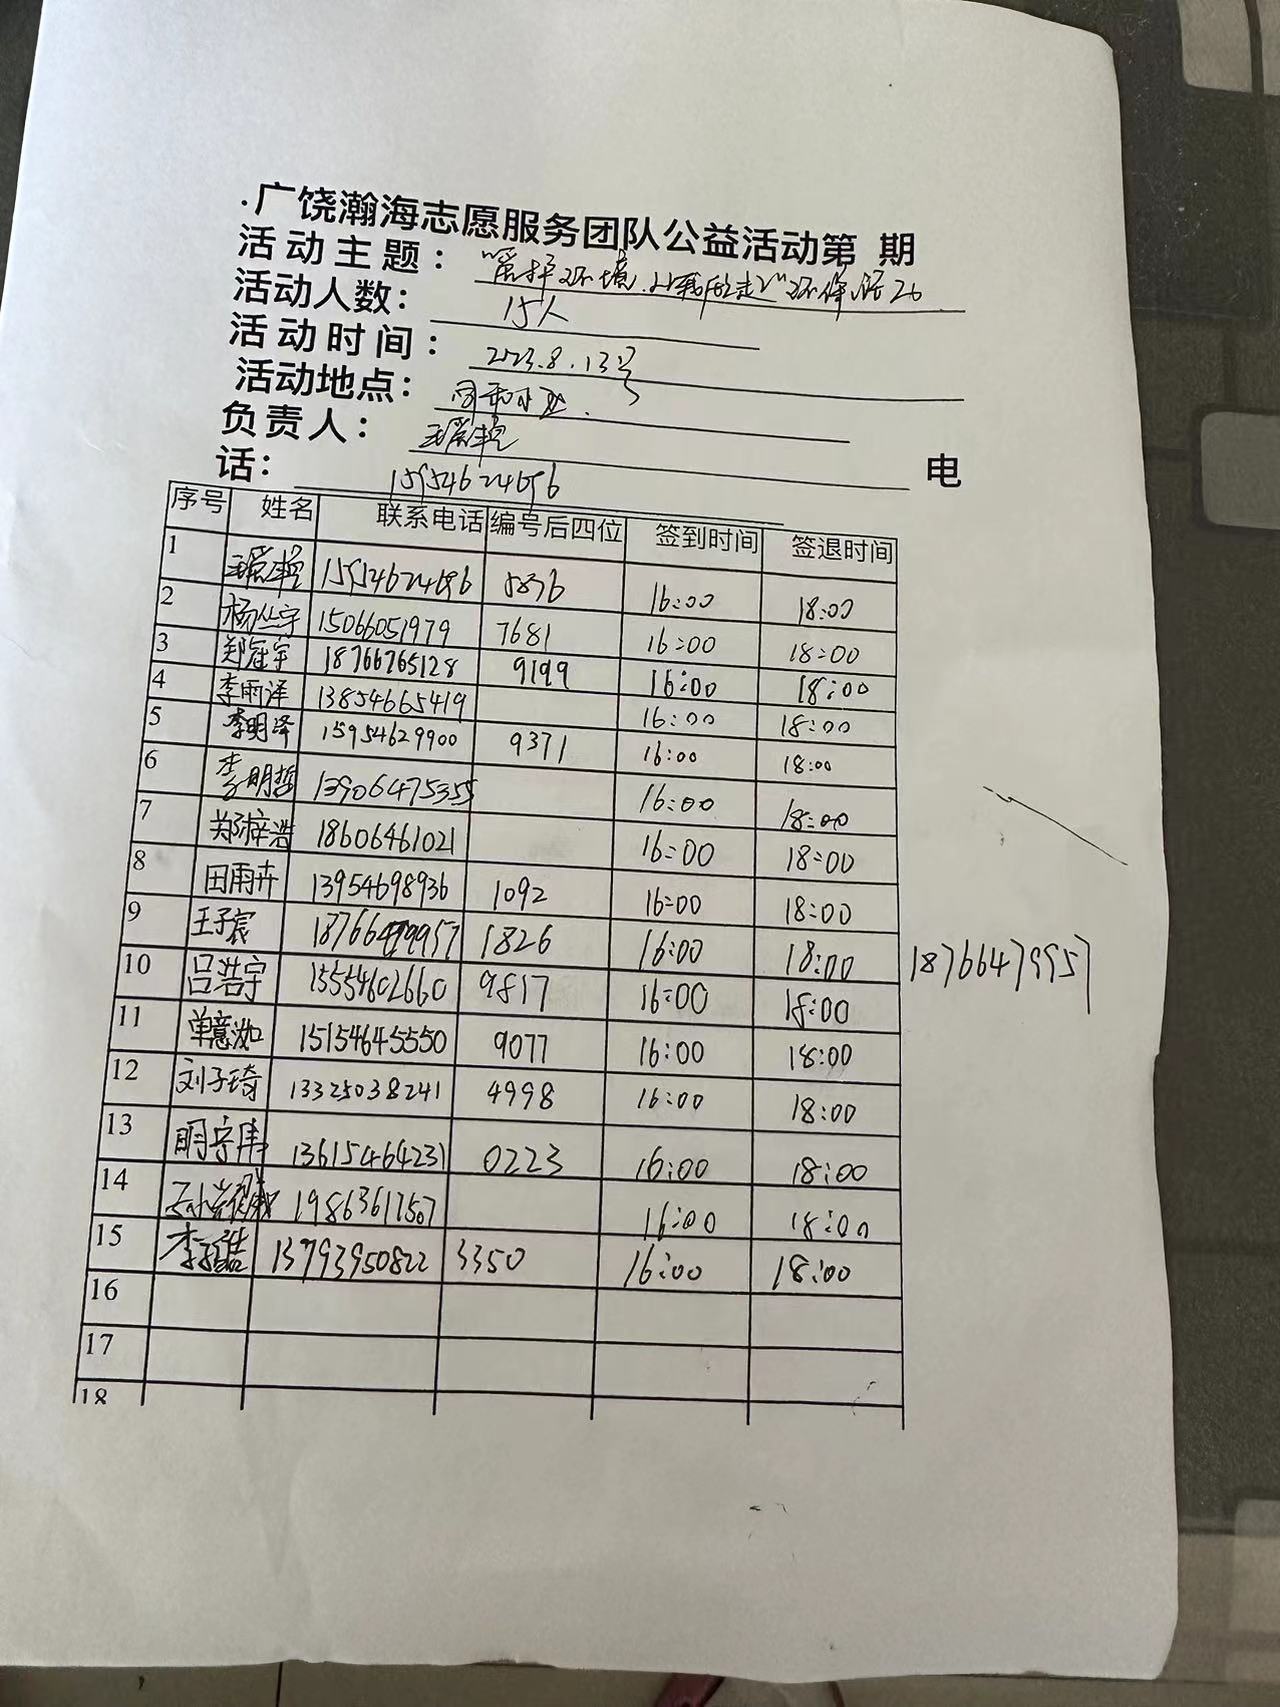 .广饶瀚海志愿服务团队公益活动第 期
活动主题：“爱护环境.从我做起”环保活动
活动人数：15人
活动时间：2023.8.13号
活动地点：
负责人：王爱艳 电
话：15954624696
序号 姓名 联系电话 编号后四位 签到时间 签退时间
1 王爱艳 15954624696 5876 16:00 18:00
2 杨竺宇 15066051979 7681 16:00 18:00
3 郑冠宇 18766765128 9199 16:00 18:00
4 李雨泽 13854665419 16:00 18:00
5 李明泽 15954629900 9371 16:00 18:00
6 李明哲 13906475355 16:00 18:00
7 郑梓浩 18606461021 16:00 18:00
8 田雨卉 13954698936 1092 16:00 18:00
9 王子宸 18766479957 1826 16:00 18:00 18766479957
10 吕浩宇 15554602660 9817 16:00 18:00
11 单意洳 15154645550 9077 16:00 18:00
12 刘子琦 13325038241 4998 16:00 18:00
13 明宇伟 13615464231 0223 16:00 18:00
14 19863617507 16:00 18:00
15 李 13793950822 3350 16:00 18:00
16
17
18